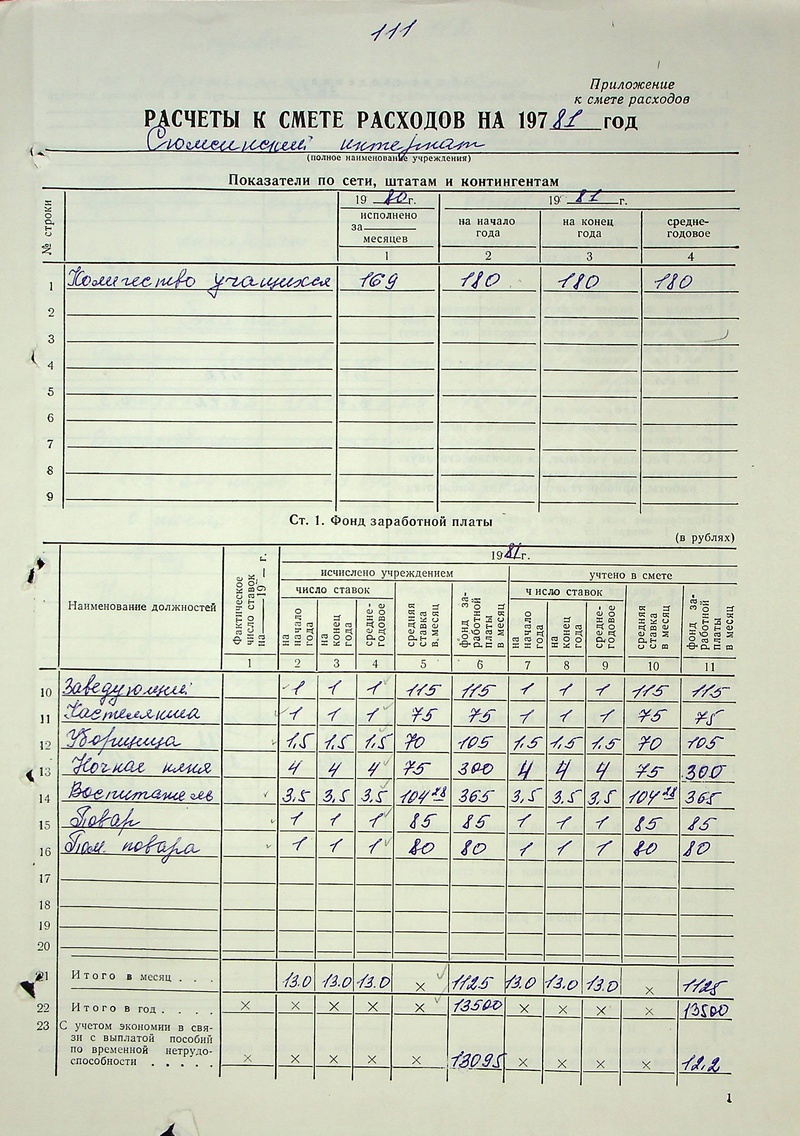 111
Приложение
к смете расходов
РАСЧЕТЫ К СМЕТЕ РАСХОДОВ НА 19781 год
Сюмсинский интернат
(полное наименование учреждения)
Показатели по сети, штатам и контингентам
№ строки
19 80 г.
19 81 г.
исполнено за ______ месяцев
на начало года
на конец года
средне-годовое
1 2 3 4
1 Количество учащихся 169 180 180 180
2
3
4
5
6
7
8
9
Ст. 1. Фонд заработной платы
(в рублях)
Наименование должностей
Фактическое число ставок на — 19 — г.
1981 г.
исчислено учреждением
учтено в смете
число ставок
число ставок
на начало года
на конец года
средне-годовое
средняя ставка в месяц
фонд за-работной платы в месяц
на начало года
на конец года
средне-годовое
средняя ставка в месяц
фонд за-работной платы в месяц
1 2 3 4 5 6 7 8 9 10 11
10 Заведующий 1 1 1 115 115 1 1 1 115 115
11 Кастелянша 1 1 1 75 75 1 1 1 75 75
12 Уборщица 1,5 1,5 1,5 70 105 1,5 1,5 1,5 70 105
13 Ночная няня 4 4 4 75 300 4 4 4 75 300
14 Воспитатель 3,5 3,5 3,5 104 28 365 3,5 3,5 3,5 104 28 365
15 Повар 1 1 1 85 85 1 1 1 85 85
16 Пом. повара 1 1 1 80 80 1 1 1 80 80
17
18
19
20
21 Итого в месяц . . . 13.0 13.0 13.0 × 1125 13.0 13.0 13.0 × 1125
22 Итого в год . . . . × × × × × 13500 × × × × 13500
23 С учетом экономии в свя-
зи с выплатой пособий
по временной нетрудо-
способности . . . . . × × × × × 13095 × × × × 12,2
1